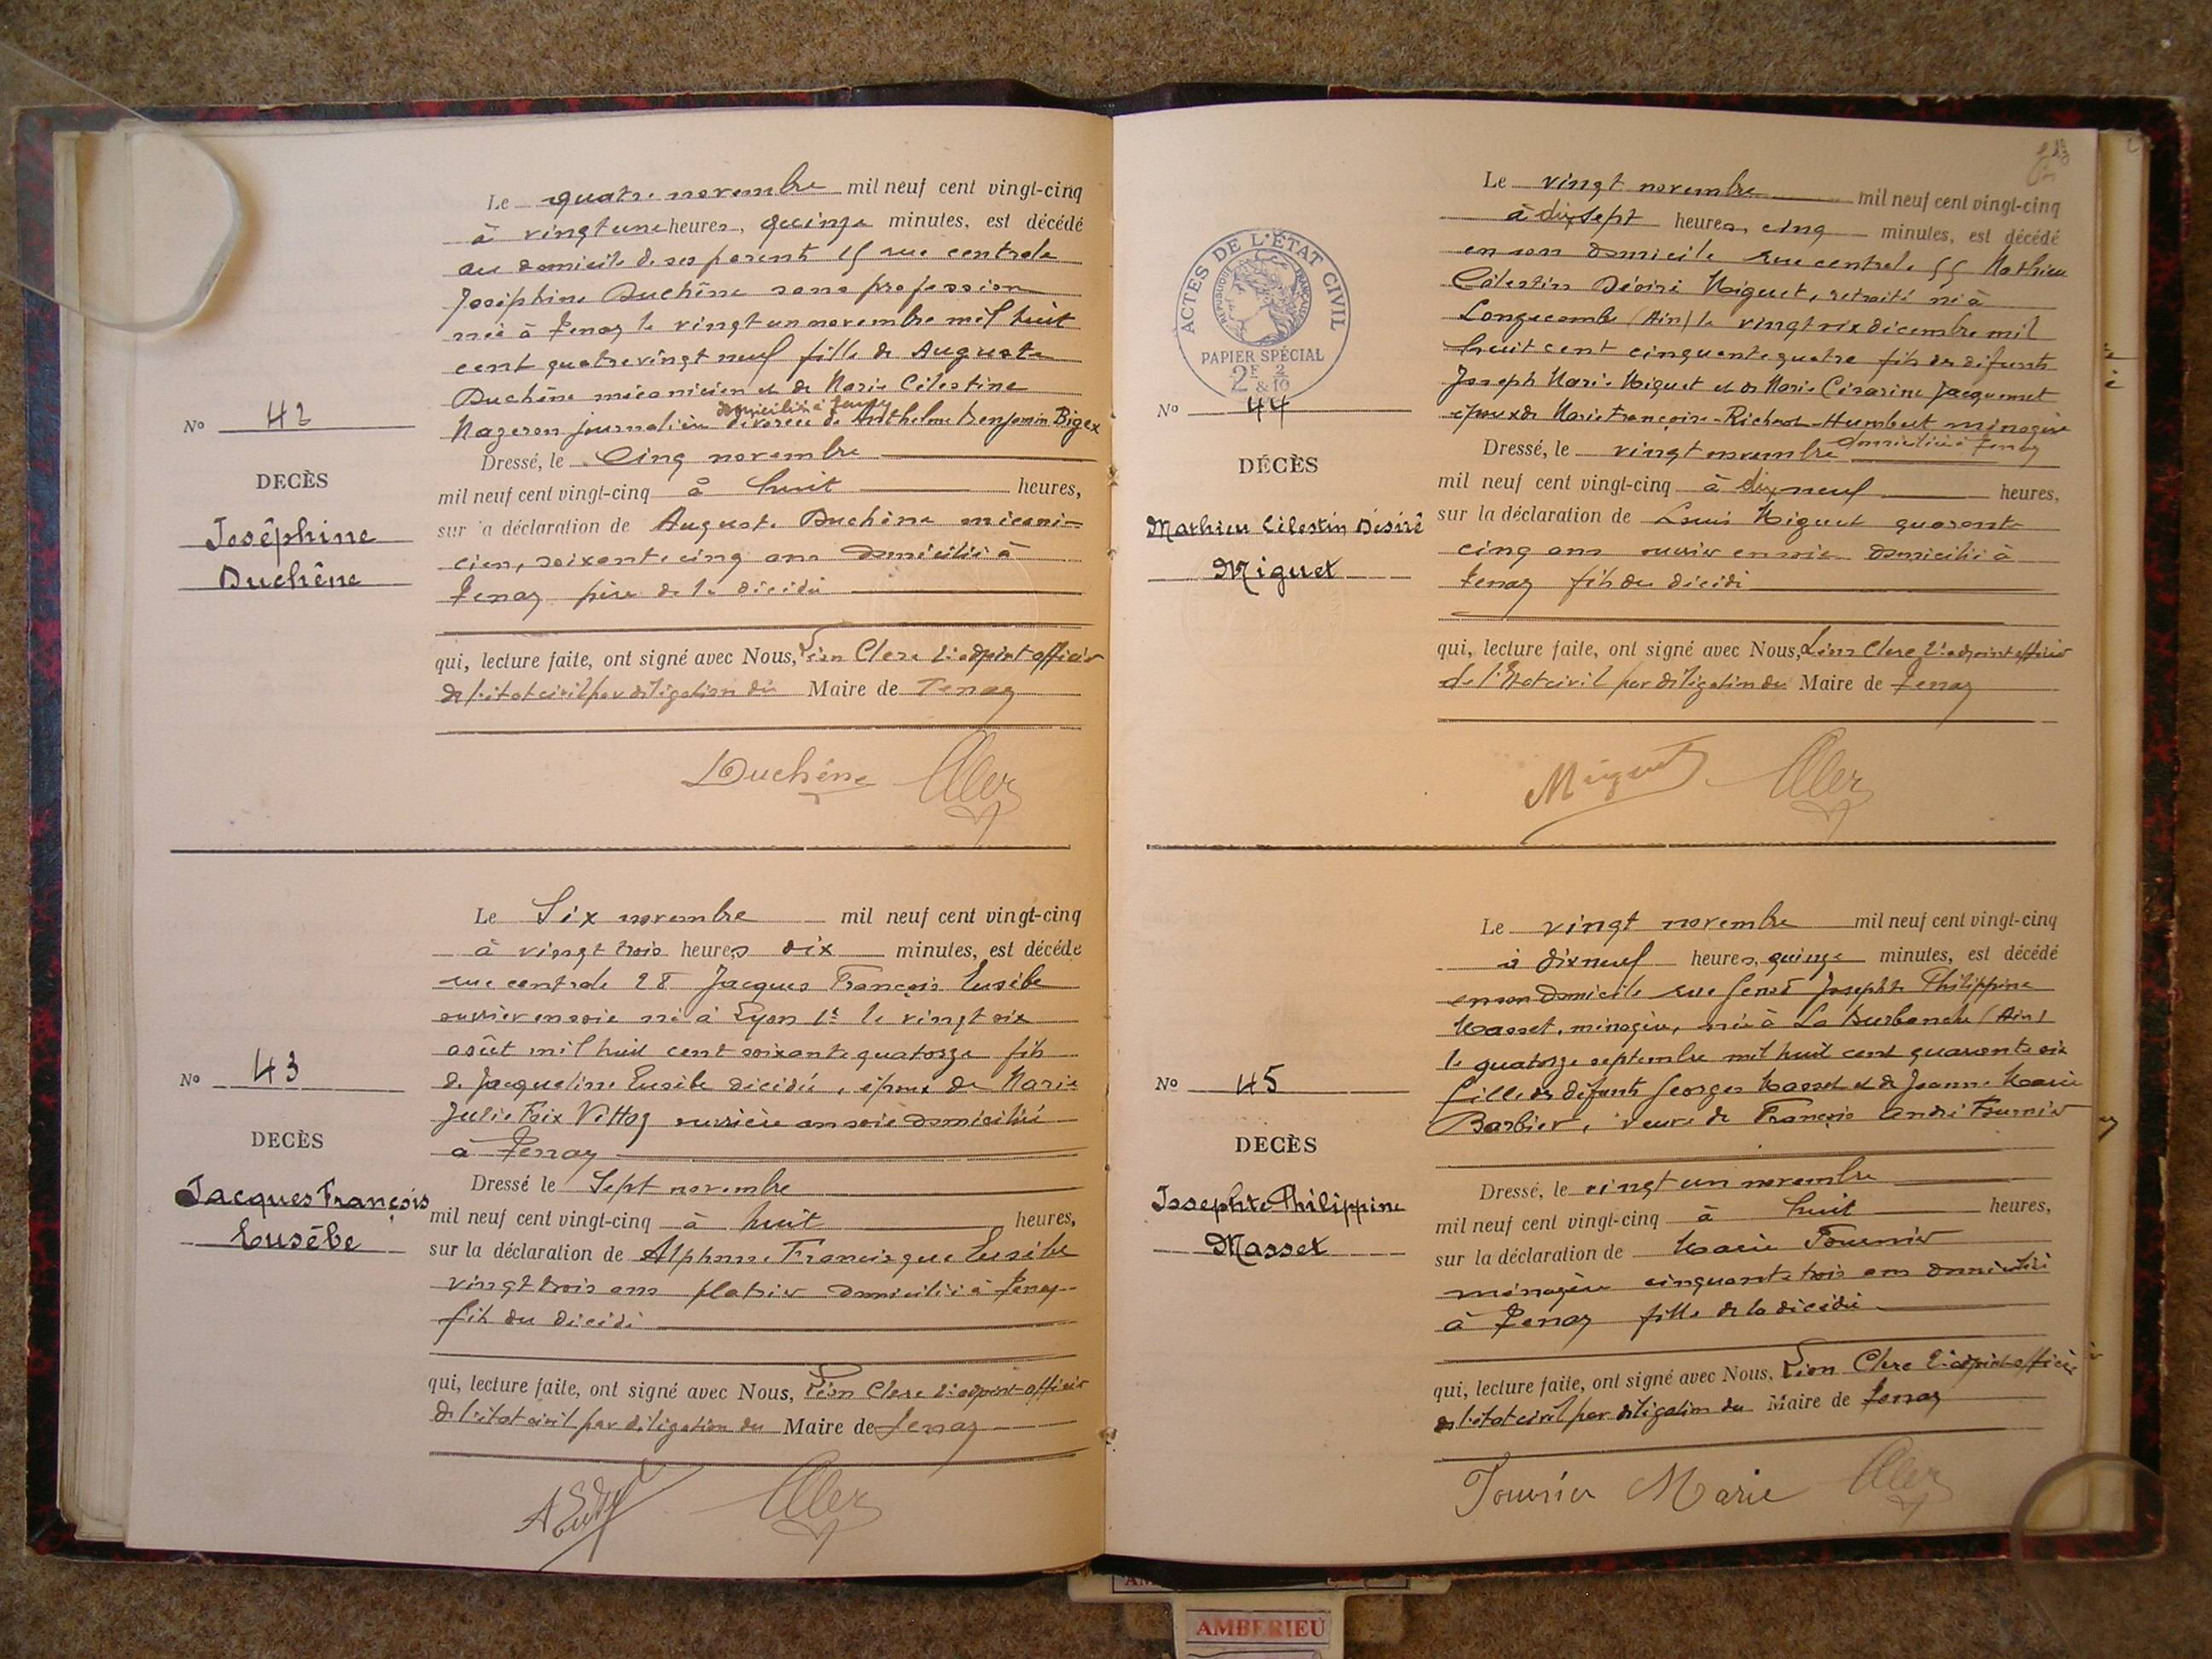 Le quatre novembre mil neuf cent vingt-cinq
à vingt une heures, quinze minutes, est décédé
au domicile de ses parents 15 rue centrale
Joséphine Duchêne sans profession
née à Tenay le vingt un novembre mil huit
cent quatre vingt neuf fille de Auguste
Duchêne mécanicien et de Marie Célestine
domiciliés à Tenay
Mazeron journalière divorcée de Anthelme Benjamin Bigex
No 42
DECÈS
Joséphine
Duchêne
Dressé, le Cinq novembre
mil neuf cent vingt-cinq à huit heures,
sur la déclaration de Auguste Duchêne mécani-
cien, soixante cinq ans domicilié à
Tenay père de la décédée
qui, lecture faite, ont signé avec Nous, Léon Clerc 2e adjoint officier
de l'état civil par délégation du Maire de Tenay
Duchêne Clerc
Le Six novembre mil neuf cent vingt-cinq
à vingt trois heures dix minutes, est décédé
rue centrale 28 Jacques François Eusèbe
ouvrier en soie né à Lyon 1er le vingt six
août mil huit cent soixante quatorze fils
de Jacqueline Eusèbe décédée, époux de Marie
Julie Foix Vittoz ouvrière en soie domiciliée
à Tenay
No 43
DECÈS
Jacques François
Eusèbe
Dressé le Sept novembre
mil neuf cent vingt-cinq à huit heures,
sur la déclaration de Alphonse Francisque Eusèbe
vingt trois ans platrier domicilié à Tenay
fils du décédé
qui, lecture faite, ont signé avec Nous, Léon Clerc 2e adjoint officier
de l'état civil par délégation du Maire de Tenay
Clerc
ACTES DE L'ÉTAT CIVIL
REPUBLIQUE FRANÇAISE
PAPIER SPÉCIAL
2F & 2/10
Le vingt novembre mil neuf cent vingt-cinq
à dix sept heures, cinq minutes, est décédé
en son domicile rue centrale 55 Mathieu
Célestin Désiré Miguet, retraité né à
Longecombe (Ain) le vingt six décembre mil
huit cent cinquante quatre fils de défunts
Joseph Marie Miguet et de Marie Césarine Jacquemet
époux de Marie Françoise Richard-Humbert ménagère
domiciliée à Tenay
No 44
DÉCÈS
Mathieu Célestin Désiré
Miguet
Dressé, le vingt novembre
mil neuf cent vingt-cinq à dix neuf heures,
sur la déclaration de Louis Miguet quarante
cinq ans ouvrier en soie domicilié à
Tenay fils du décédé
qui, lecture faite, ont signé avec Nous, Léon Clerc 2e adjoint officier
de l'état civil par délégation du Maire de Tenay
Miguet Clerc
Le vingt novembre mil neuf cent vingt-cinq
à dix neuf heures, quinze minutes, est décédé
en son domicile rue Genod Josephte Philippine
Masset, ménagère, née à La Burbanche (Ain)
le quatorze septembre mil huit cent quarante six
fille de défunts Georges Masset et de Jeanne Marie
Barbier, veuve de François André Fournier
No 45
DECÈS
Josephte Philippine
Masset
Dressé, le vingt un novembre
mil neuf cent vingt-cinq à huit heures,
sur la déclaration de Marie Fournier
ménagère cinquante trois ans domiciliée
à Tenay fille de la décédée
qui, lecture faite, ont signé avec Nous, Léon Clerc 2e adjoint officier
de l'état civil par délégation du Maire de Tenay
Fournier Marie Clerc
AMBERIEU